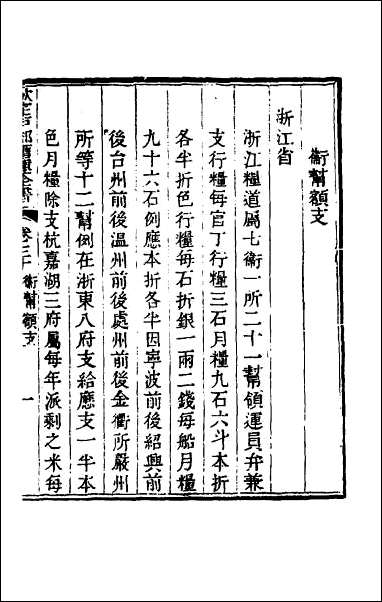 衛幫額支
浙江省
浙江糧道屬七衛一所二十一幫領運員弁兼
支行糧每官丁行糧三石月糧九石六斗本折
各半折色行糧每石折銀一兩二錢每船月糧
九十六石例應本折各半因寧波前後紹興前
後台州前後溫州前後處州前後金衢所嚴州
所等十二幫例在浙東八府支給應支一半本
色月糧除支杭嘉湖三府屬每年派剩之米每
欽定戶部漕運全書 卷二十 衛幫額支 一